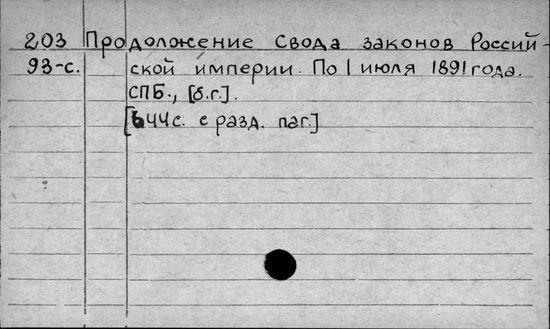 203 Продолжение Свода законов Россий-
93-с. ской империи. По 1 июля 1891 года.
СПБ., [б.г.].
[644с. с разд. паг.]